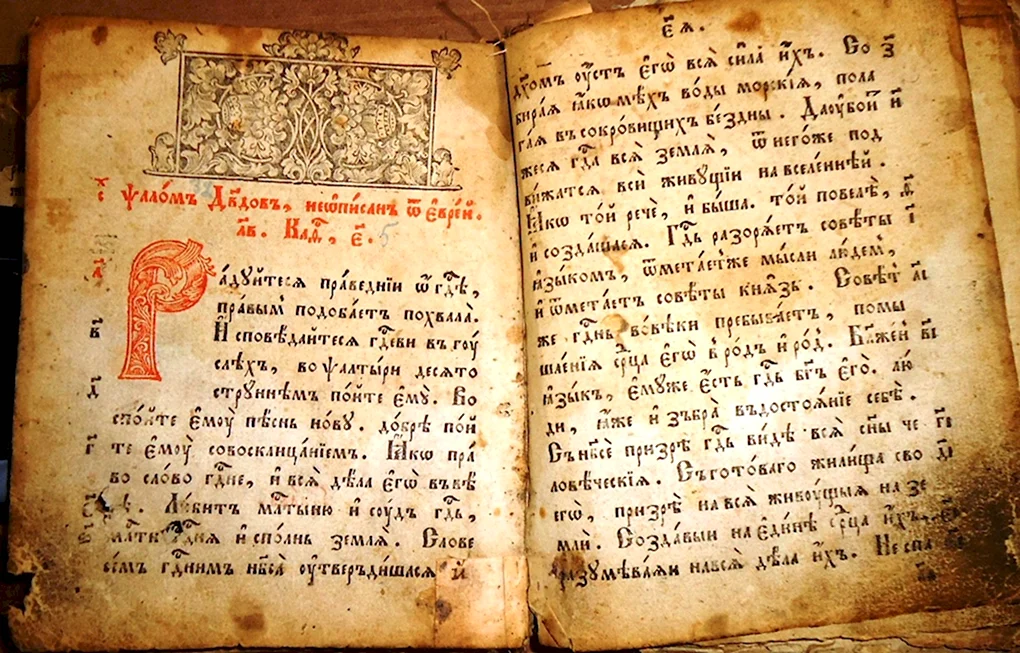 ѱало́мъ Дв҃довъ, неѡпи́санъ ѿ євре́й.
л҃в. Каѳ, є҃. 5
Ра́дуйтеся пра́веднїи ѡ гд҃ѣ,
пра́вымъ подоба́етъ похвала̀.
И сповѣ́дайтеся гд҃еви въ гоу́
слехъ, во ѱалты́ри десято
стру́ннѣмъ по́йте є҆му̀. Во
спо́йте є҆моу̀ пѣ́снь но́ву. до́брѣ по́й
те є҆моу̀ совосклица́нїемъ. Ꙗ҆́кѡ пра́
во сло́во гд҃не, и҆ вся̀ дѣла̀ є҆гѡ̀ въ вѣ́
рѣ. Лю́битъ мл҃тыню и҆ соу́дъ гд҃ь,
мл҃ти гд҃ня и҆спо́лнь земля̀. Слове
се́мъ гд҃нимъ нб҃са̀ оу҆тверди́шася и҆
є҃я.
дх҃омъ оу҆́стъ є҆гѡ̀ вся̀ си́ла и҆́хъ. Со
бира́я ꙗ҆́кѡ мѣ́хъ во́ды морскі́я, пола
га́я въ сокро́вищихъ бе́здны. Да оу҆бои́т
жеся гд҃а вся̀ земля̀, ѿ него́же под
ви́жатся всѝ живу́щїи на вселе́ннѣй.
Ꙗ҆́кѡ то́й речѐ, и҆ бы́ша. то́й повелѣ̀,
и҆ созда́шася. Гд҃ь разоря́етъ совѣ́ты
ꙗ҆зы́комъ, ѿмета́етже мы́сли люде́мъ,
и҆ ѿмета́етъ совѣ́ты кня́зь. Совѣ́т
же гд҃нь во вѣ́ки пребыва́етъ, помы
шле́нїя ср҃ца є҆гѡ̀ в ро́дъ и҆ ро́д. Бл҃же́н
ꙗ҆зы́къ, є҆му́же є҆́сть гд҃ь бг҃ъ є҆гѡ̀. лю́
ди, ꙗ҆̀же и҆збра̀ въ достоя́нїе себѣ̀.
Съ нб҃сѐ призрѣ̀ гд҃ь ви́дѣ вся̀ сн҃ы че
ловѣ́ческїя. Съ гото́ваго жили́ща сво
егѡ̀, призрѣ̀ на вся̀ живоу́щыя на зе
млѝ. Созда́выи на є҆ди́нѣ ср҃ца и҆́хъ,
разумѣва́яи на вся̀ дѣла̀ и҆́хъ. Не спа